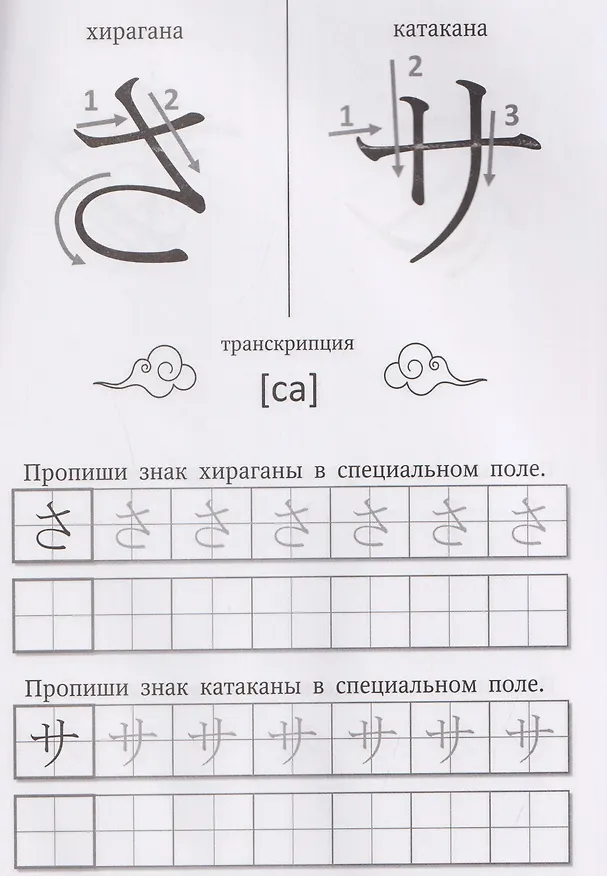 хирагана
катакана
1 2
さ
1 2 3
サ
транскрипция
[са]
Пропиши знак хираганы в специальном поле.
さ さ さ さ さ さ さ
Пропиши знак катаканы в специальном поле.
サ サ サ サ サ サ サ